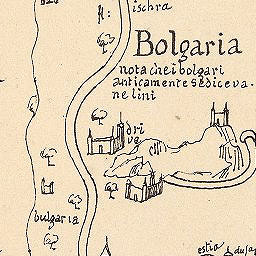 ischra
Bolgaria
nota che i bolgari
anticamente se diceva.
ne lini
dri
va
bulgaria
estia